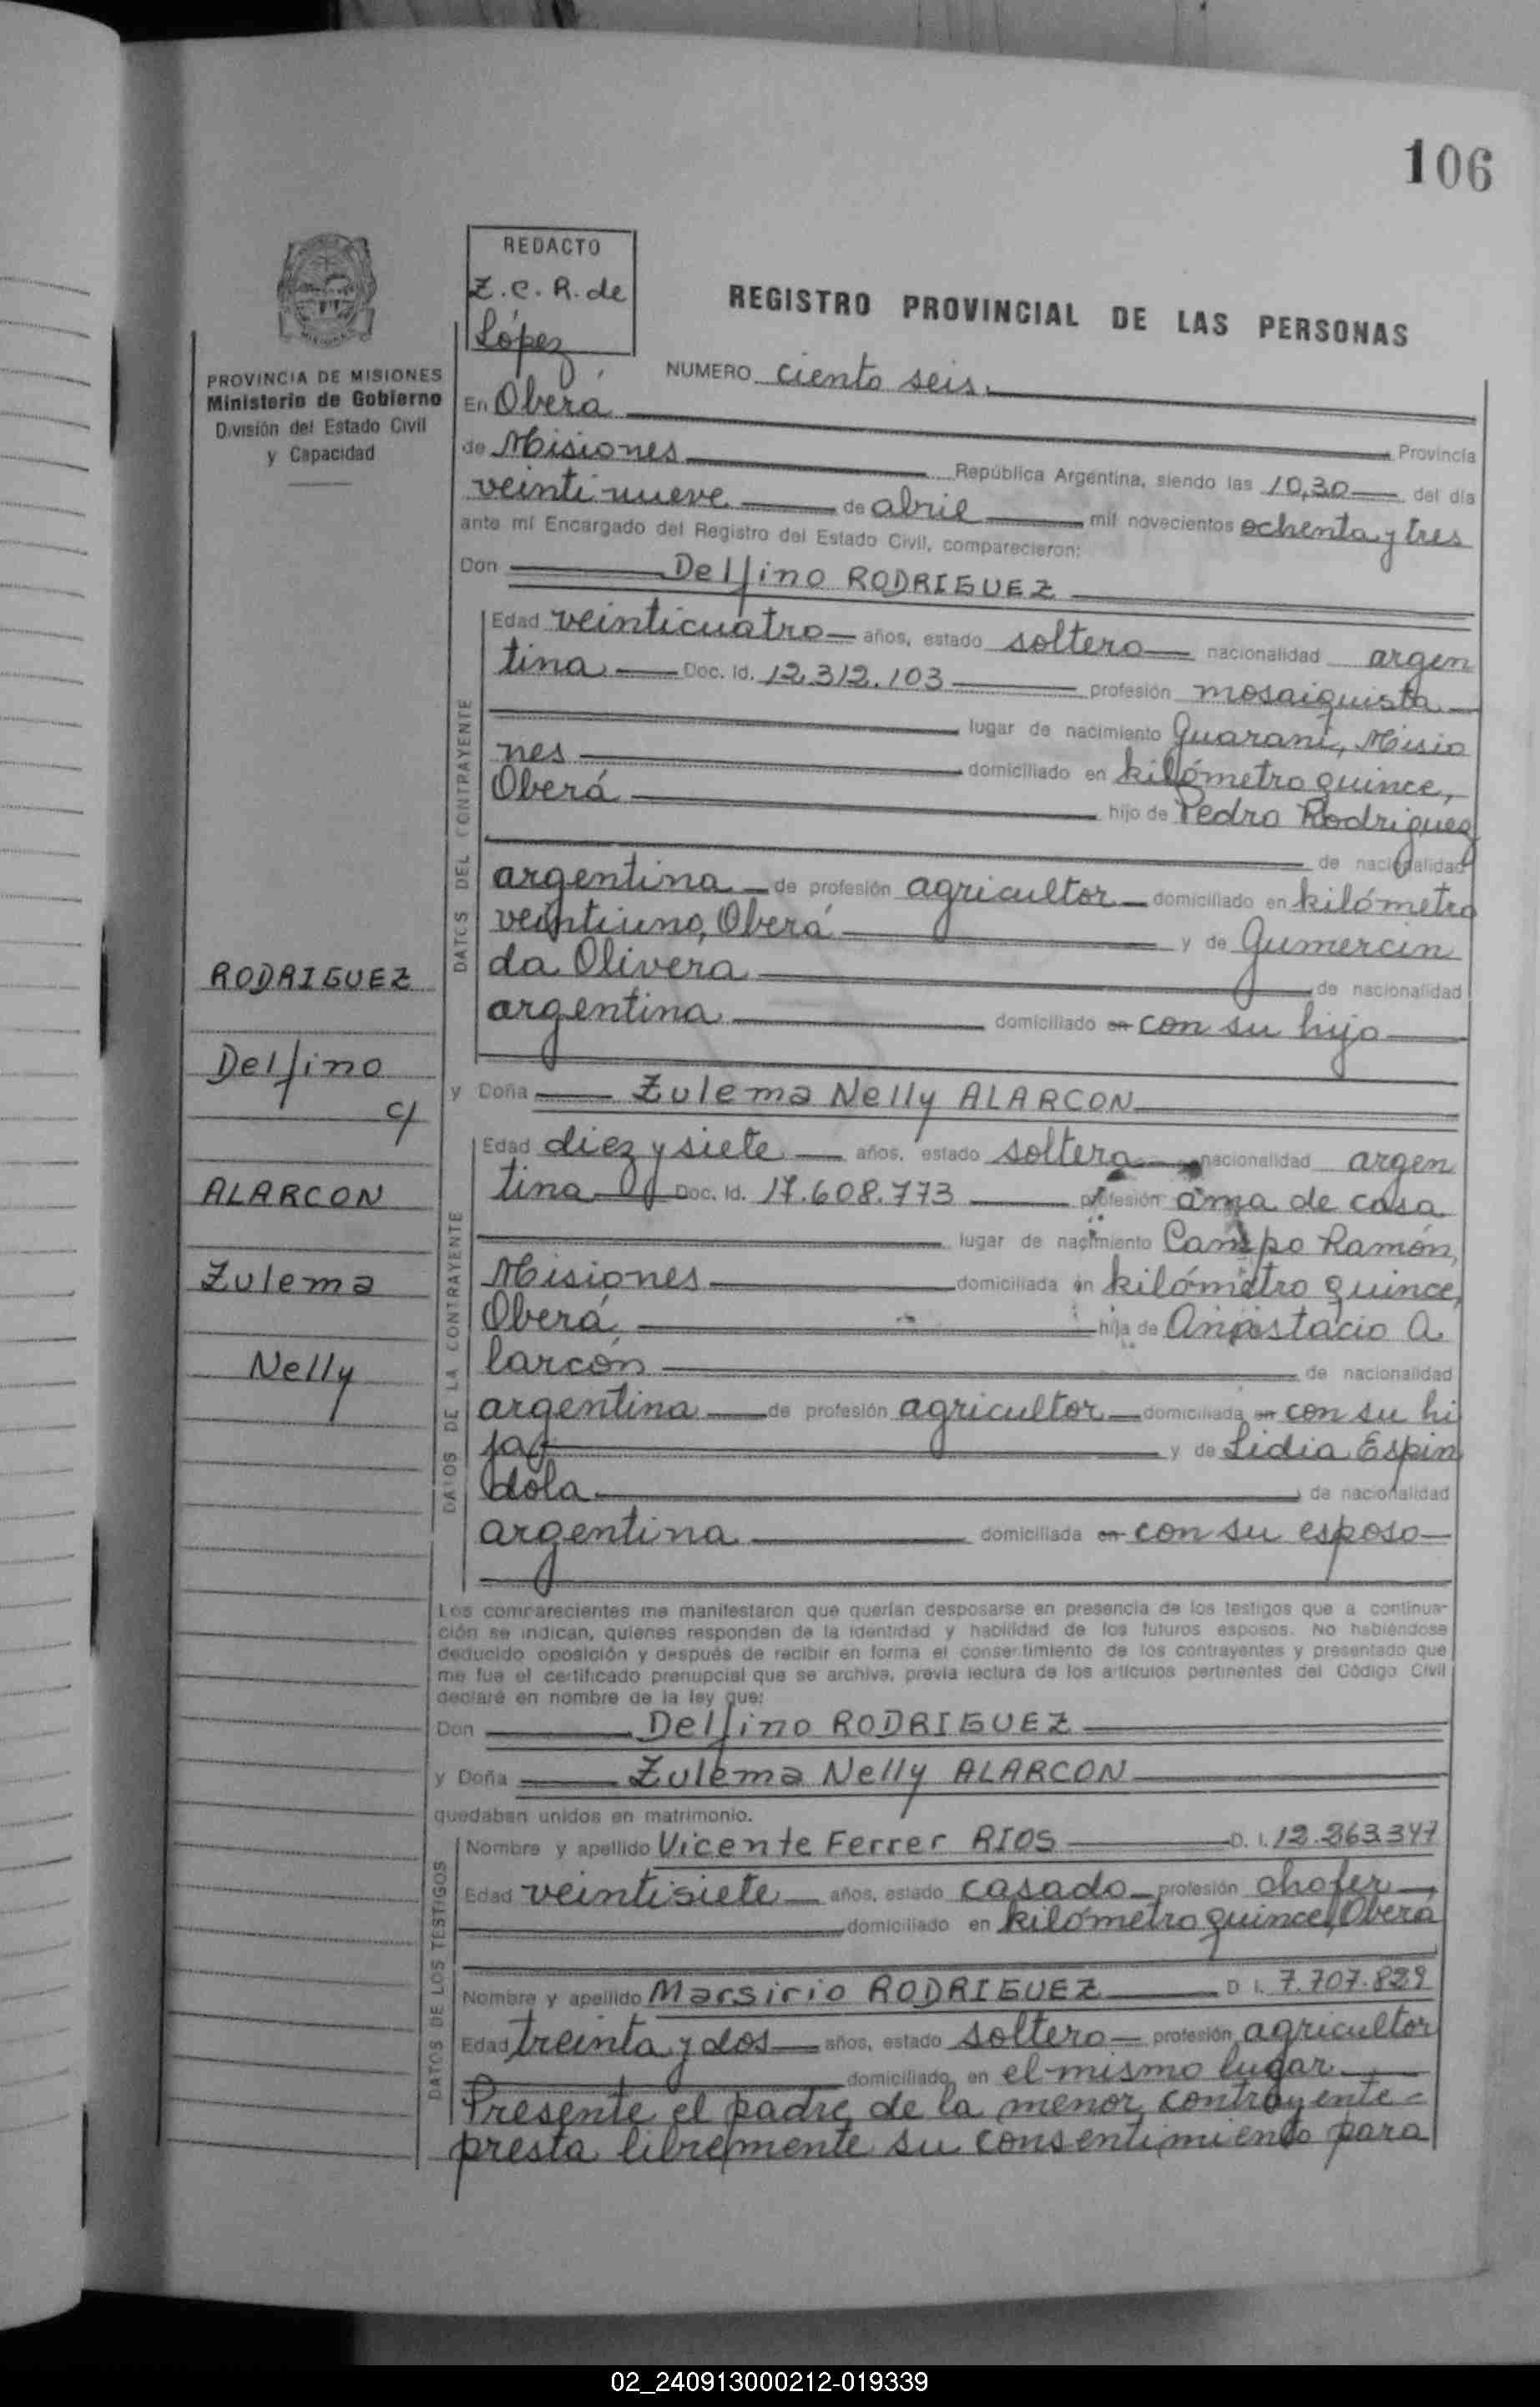 106
REDACTO
Z. C. R. de
López
REGISTRO PROVINCIAL DE LAS PERSONAS
PROVINCIA DE MISIONES
Ministerio de Gobierno
División del Estado Civil
y Capacidad
NUMERO ciento seis.
En Oberá Provincia
de Misiones República Argentina, siendo las 10,30 del día
veintinueve de abril mil novecientos ochenta y tres
ante mí Encargado del Registro del Estado Civil, comparecieron:
Don Delfino RODRIGUEZ
DATOS DEL CONTRAYENTE
Edad veinticuatro años, estado soltero nacionalidad argen
tina Doc. Id. 12.312.103 profesión mosaiquista
lugar de nacimiento Guaraní, Misio
nes domiciliado en kilómetro quince,
Oberá hijo de Pedro Rodriguez
de nacionalidad
argentina de profesión agricultor domiciliado en kilómetro
veintiuno, Oberá y de Gumercin
da Olivera de nacionalidad
argentina domiciliado en con su hijo
RODRIGUEZ
Delfino
c/
ALARCON
Zulema
Nelly
y Doña Zulema Nelly ALARCON
DATOS DE LA CONTRAYENTE
Edad diez y siete años, estado soltera nacionalidad argen
tina Doc. Id. 17.608.773 profesión ama de casa
lugar de nacimiento Campo Ramón,
Misiones domiciliada en kilómetro quince,
Oberá hija de Anastacio A
larcón de nacionalidad
argentina de profesión agricultor domiciliada en con su hi
ja y de Lidia Espin
dola de nacionalidad
argentina domiciliada en con su esposo
Los comparecientes me manifestaron que querían desposarse en presencia de los testigos que a continua-
ción se indican, quienes responden de la identidad y habilidad de los futuros esposos. No habiéndose
deducido oposición y después de recibir en forma el consentimiento de los contrayentes y presentado que
me fue el certificado prenupcial que se archiva, previa lectura de los artículos pertinentes del Código Civil
declaré en nombre de la ley que:
Don Delfino RODRIGUEZ
y Doña Zulema Nelly ALARCON
quedaban unidos en matrimonio.
DATOS DE LOS TESTIGOS
Nombre y apellido Vicente Ferrer RIOS D. I. 12.863.347
Edad veintisiete años, estado casado profesión chofer
domiciliado en kilómetro quince, Oberá
Nombre y apellido Marsirio RODRIGUEZ D. I. 7.707.829
Edad treinta y dos años, estado soltero profesión agricultor
domiciliado en el mismo lugar
Presente el padre de la menor contrayente
presta libremente su consentimiento para
02_240913000212-019339